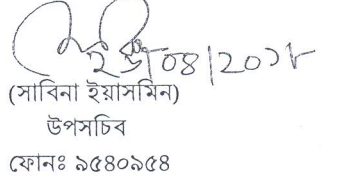 ২৬/08/20১৮
(সাবিনা ইয়াসমিন)
উপসচিব
ফোনঃ ৯৫৪০৯৫৪